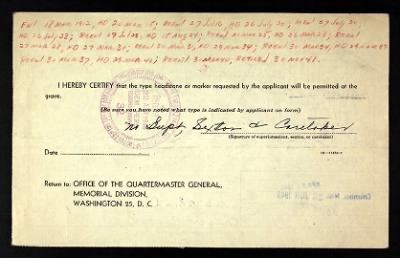 Enl 18 Mar 12, HD 20 Mar 15; Reenl 27 Jul 16, HD 26 Jul 20; Reenl 27 Jul 20,
HD 26 Jul 23; Reenl HD 18 Aug 24; Reenl HD 26 Mar 28; Reenl
27 Mar 28, HD 27 Mar 31; Reenl 30 Mar 31, HD 29 Mar 34; Reenl 30 Mar 34, HD
Reenl 30 Mar 37, HD 29 Mar 40; Reenl 30 Mar 40, Retired 30 Nov 41.
I HEREBY CERTIFY that the type headstone or marker requested by the applicant will be permitted at the
grave.
(Be sure you have noted what type is indicated by applicant on form)
No Supt, Sexton or Caretaker
(Signature of superintendent, sexton, or caretaker)
Date
Return to: OFFICE OF THE QUARTERMASTER GENERAL,
MEMORIAL DIVISION,
WASHINGTON 25, D. C.